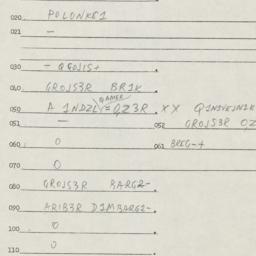 020 POLONKE1
021 —
030 — QGOJ1S+
040 GROJS3R BR1K
GAMER
050 A 1NDZL/=QZ3R. XX Q1N1VEJN1K
051 — 052 GROJS3R OZ
060 0 061 BREG-+
070 0
080 GROJS3R BARG2-
090 ARIB3R D1MBARG2-
100 0
110 0